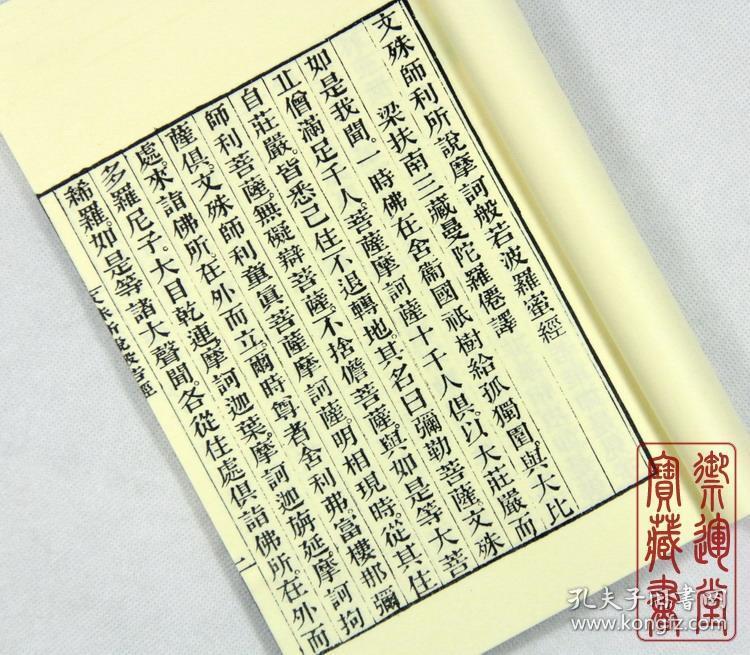 文殊師利所說摩訶般若波羅蜜經
梁扶南三藏曼陀羅僊譯
如是我聞。一時佛在舍衞國祇樹給孤獨園。與大比
丘僧滿足千人。菩薩摩訶薩十千人俱。以大莊嚴而
自莊嚴。皆悉已住不退轉地。其名曰彌勒菩薩。文殊
師利菩薩。無礙辯菩薩。不捨儋菩薩。與如是等大菩
薩俱。文殊師利童眞菩薩摩訶薩。明相現時。從其住
處來詣佛所。在外而立。爾時尊者舍利弗。富樓那彌
多羅尼子。大目乾連。摩訶迦葉。摩訶迦旃延。摩訶拘
絺羅。如是等諸大聲聞。各從住處俱詣佛所。在外而
一
寶藏書
孔夫子旧书网
www.kongfz.com